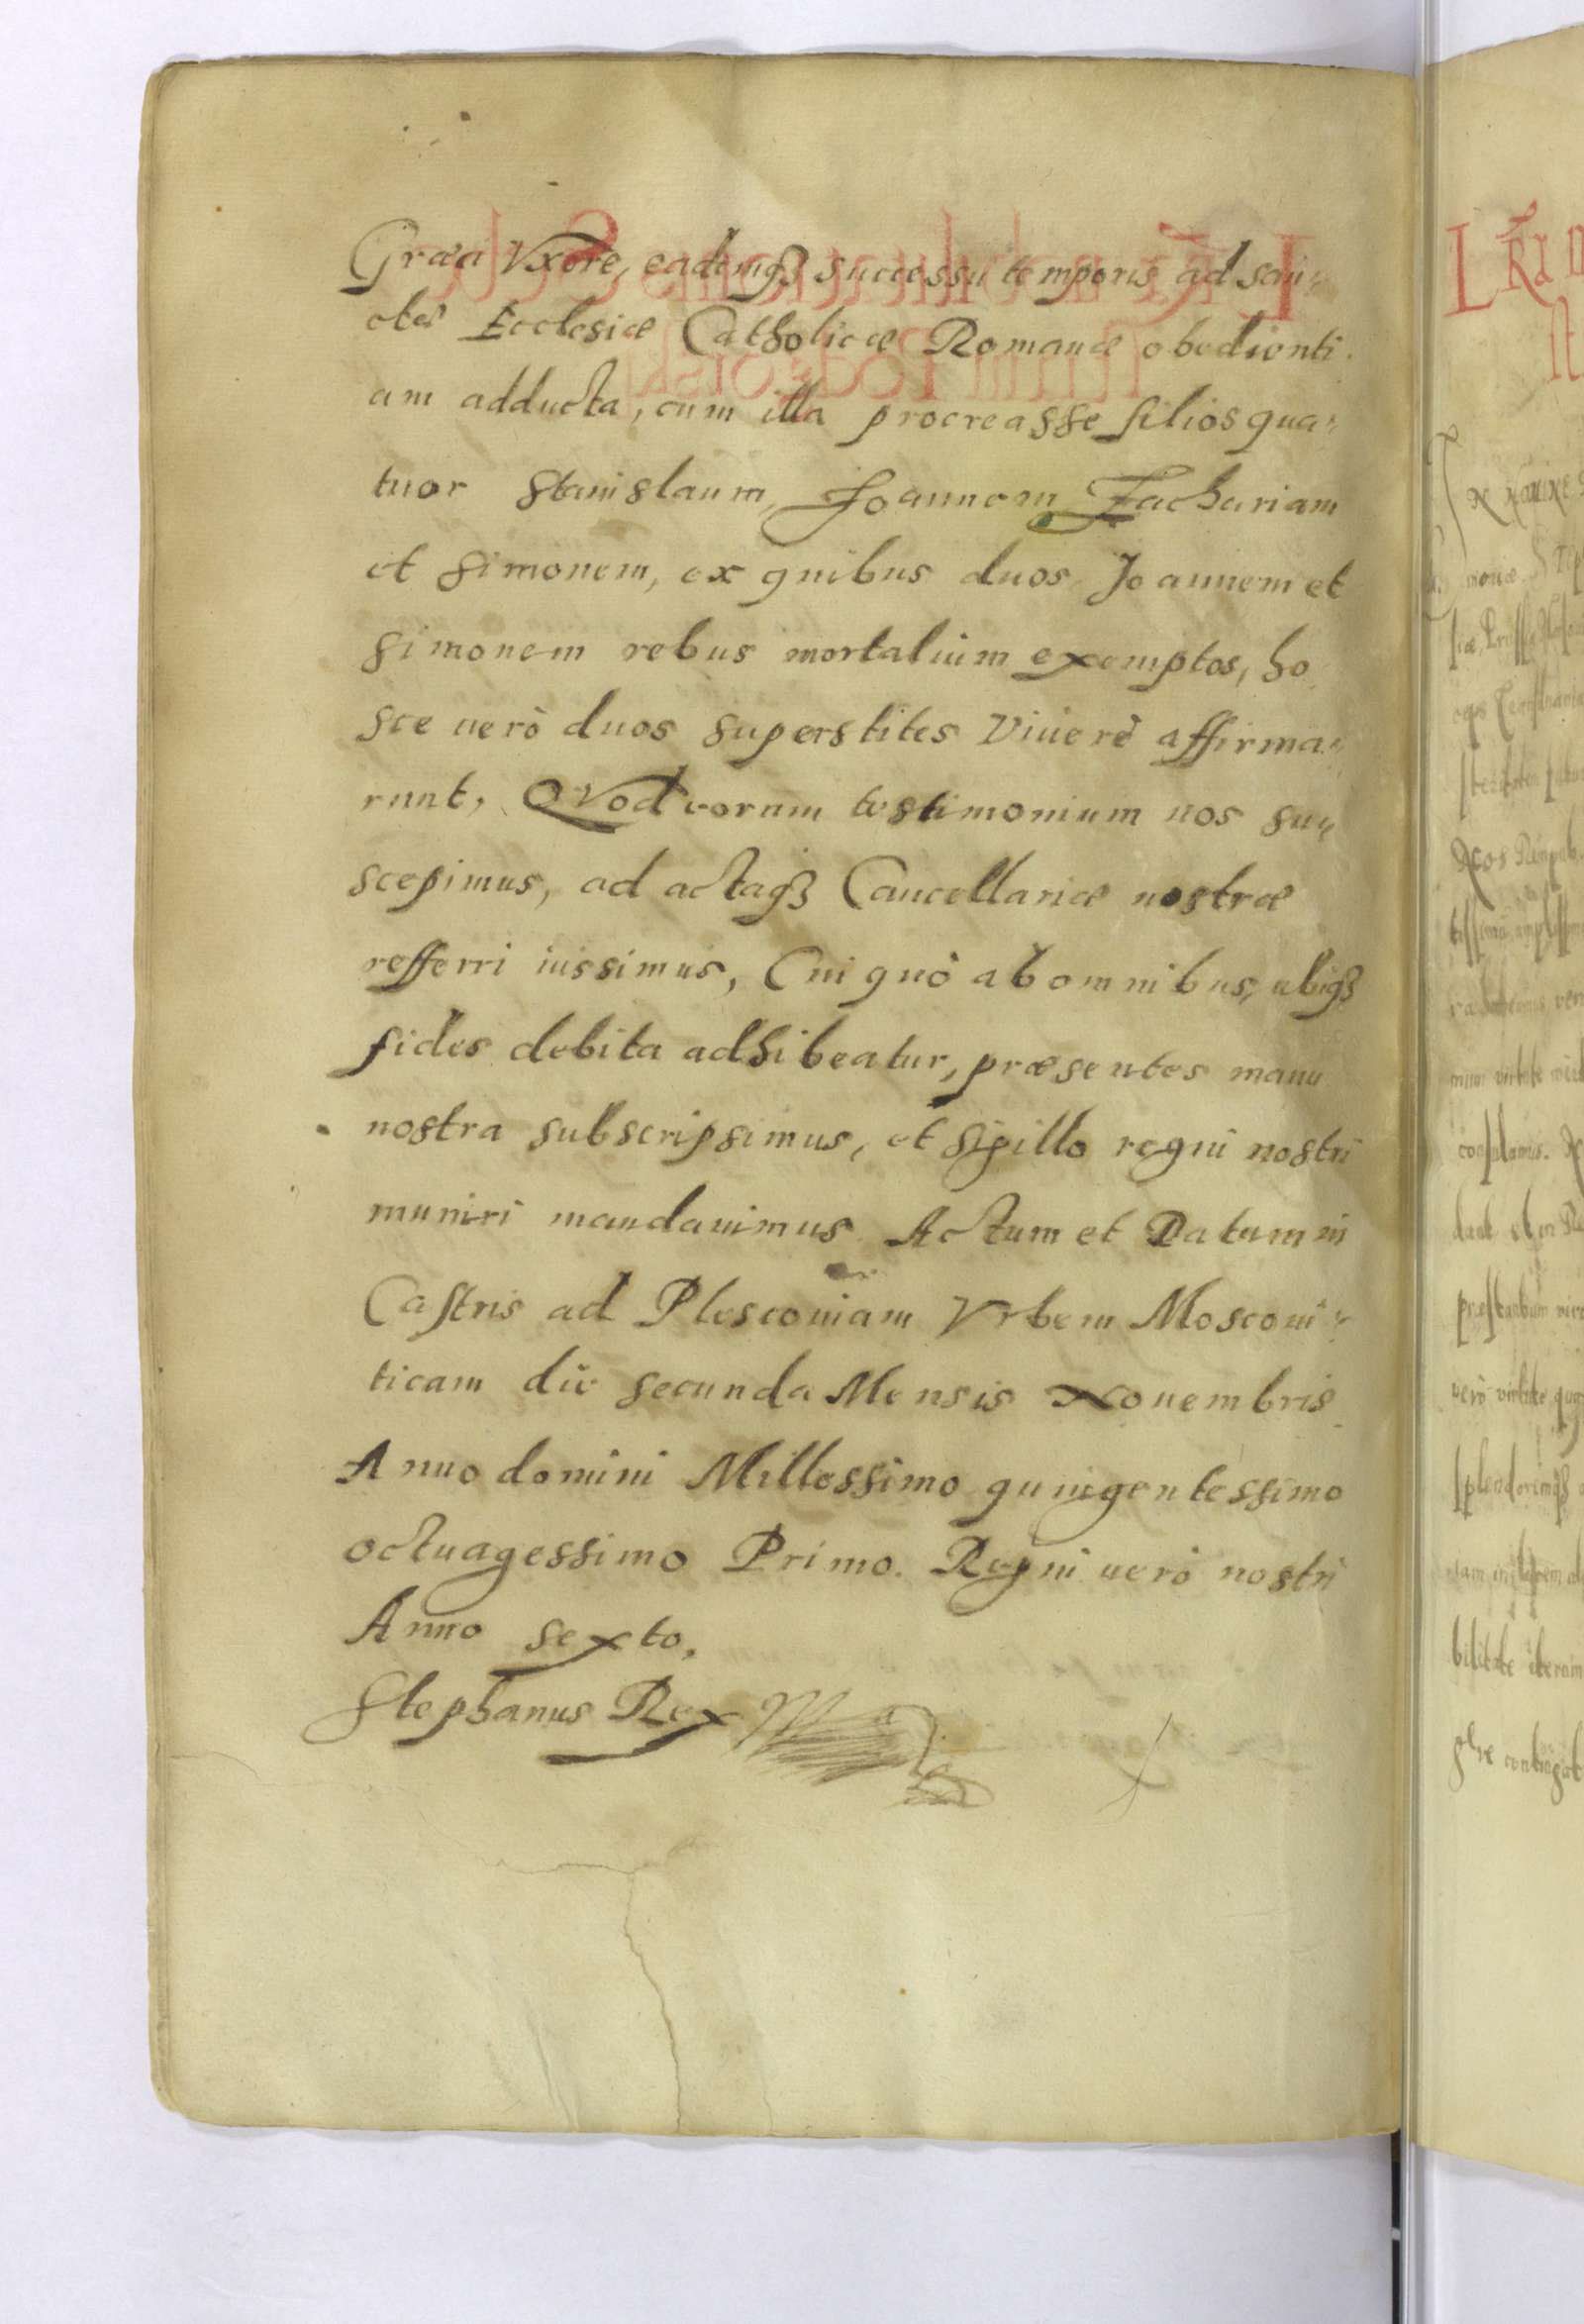 Græca Vxore, eademqȝ successu temporis ad san„
ctæ Ecclesiæ Catholicæ Romanæ obedienti.
am adducta, cum illa procreasse filios qua„
tuor Stanislaum, Joannem Zachariam
et Simonem, ex quibus duos Joannem et
Simonem rebus mortalium exemptos, ho
sce uerò duos superstites Viuere affirma„
runt, QVod eorum testimonium nos su„
scepimus, ad actaqȝ Cancellariæ nostræ
refferri iussimus, Cui quò ab omnibus, ubiqȝ
fides debita adhibeatur, præsentes manu
nostra subscripsimus, et Sigillo regni nostri
muniri mandauimus Actum et Datum in
Castris ad Plescouiam Vrbem Moscoui„
ticam die secunda Mensis Nouembris
Anno domini Millessimo quingentessimo
octuagessimo Primo. Regni uerò nostri
Anno sexto,
Stephanus Rex